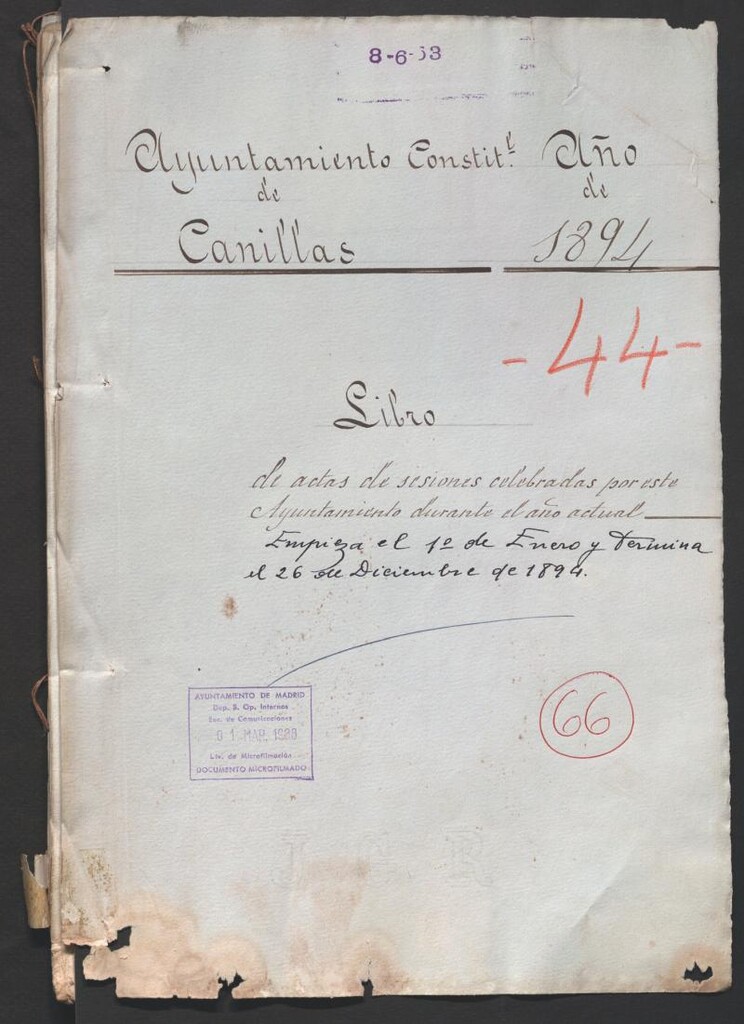 8-6-53
Ayuntamiento Constit.l Año
de de
Canillas 1894
-44-
Libro
de actas de sesiones celebradas por este
Ayuntamiento durante el año actual
Empieza el 1º de Enero y termina
el 26 de Diciembre de 1894.
66
AYUNTAMIENTO DE MADRID
Dep. S. Op. Internos
de Comunicaciones
01 MAR. 1988
de Microfilmación
DOCUMENTO MICROFILMADO